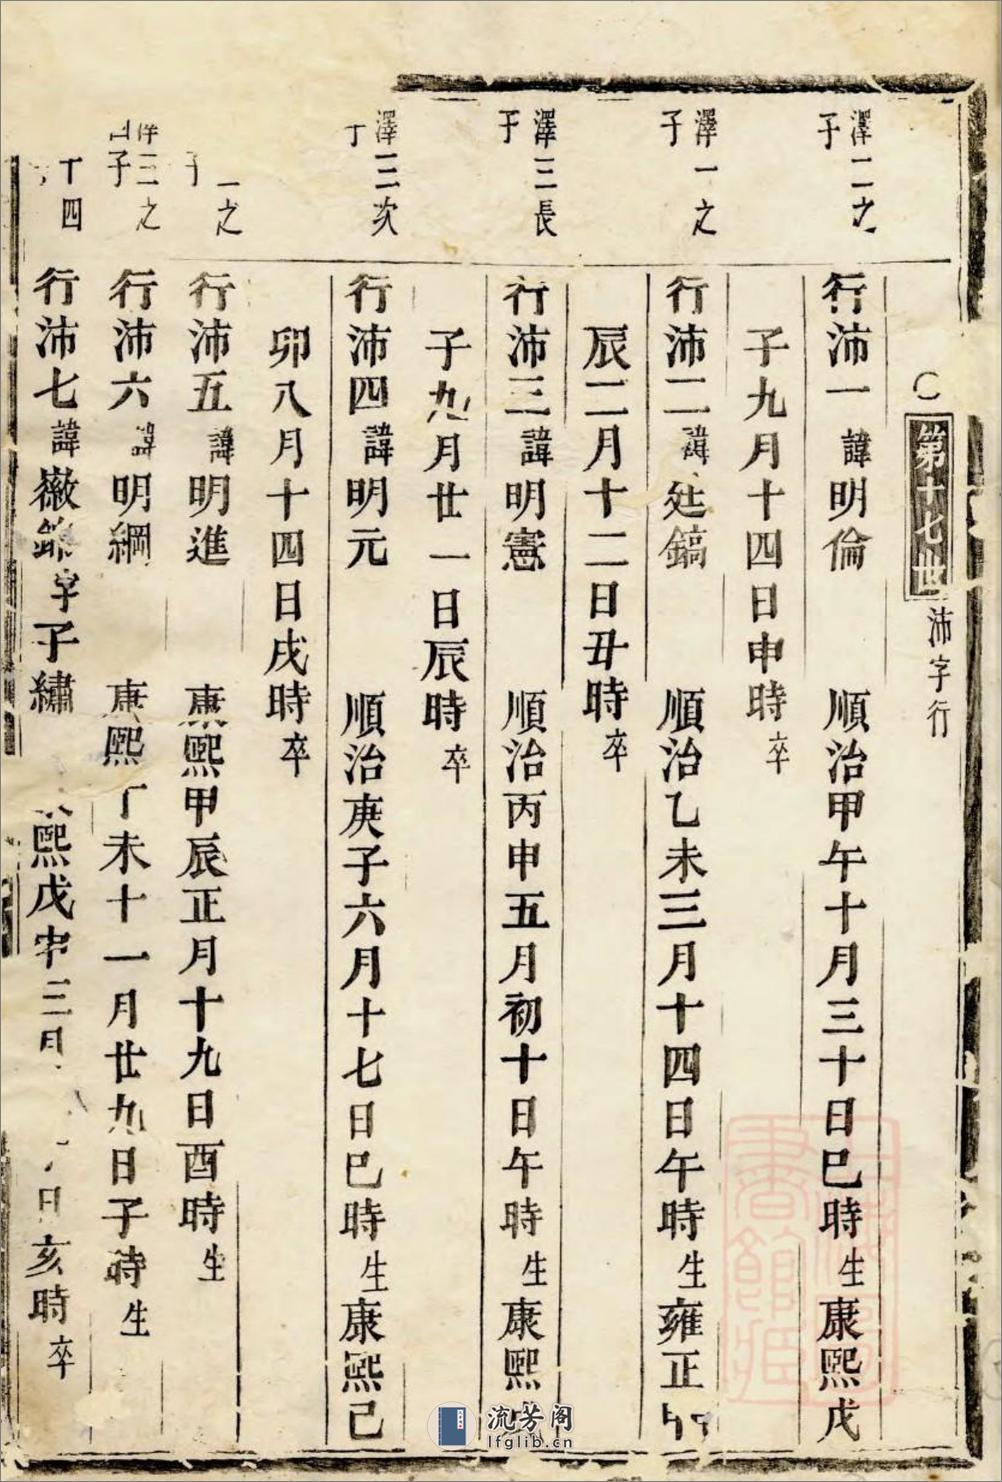 第十七世 沛字行
澤二之
子
行沛一 諱明倫 順治甲午十月三十日巳時生康熙戊
子九月十四日申時卒
澤一之
子
行沛二 諱廷鎬 順治乙未三月十四日午時生雍正
辰二月十二日丑時卒
澤三長
子
行沛三 諱明憲 順治丙申五月初十日午時生康熙
子九月廿一日辰時卒
澤三次
行沛四 諱明元 順治庚子六月十七日巳時生康熙己
卯八月十四日戌時卒
一之
子
行沛五 諱明進 康熙甲辰正月十九日酉時生
三之
子
行沛六 諱明綱 康熙丁未十一月廿九日子時生
十四
行沛七 諱徽 字子繡 熙戊申三月 日亥時卒
流芳阁
lfglib.cn